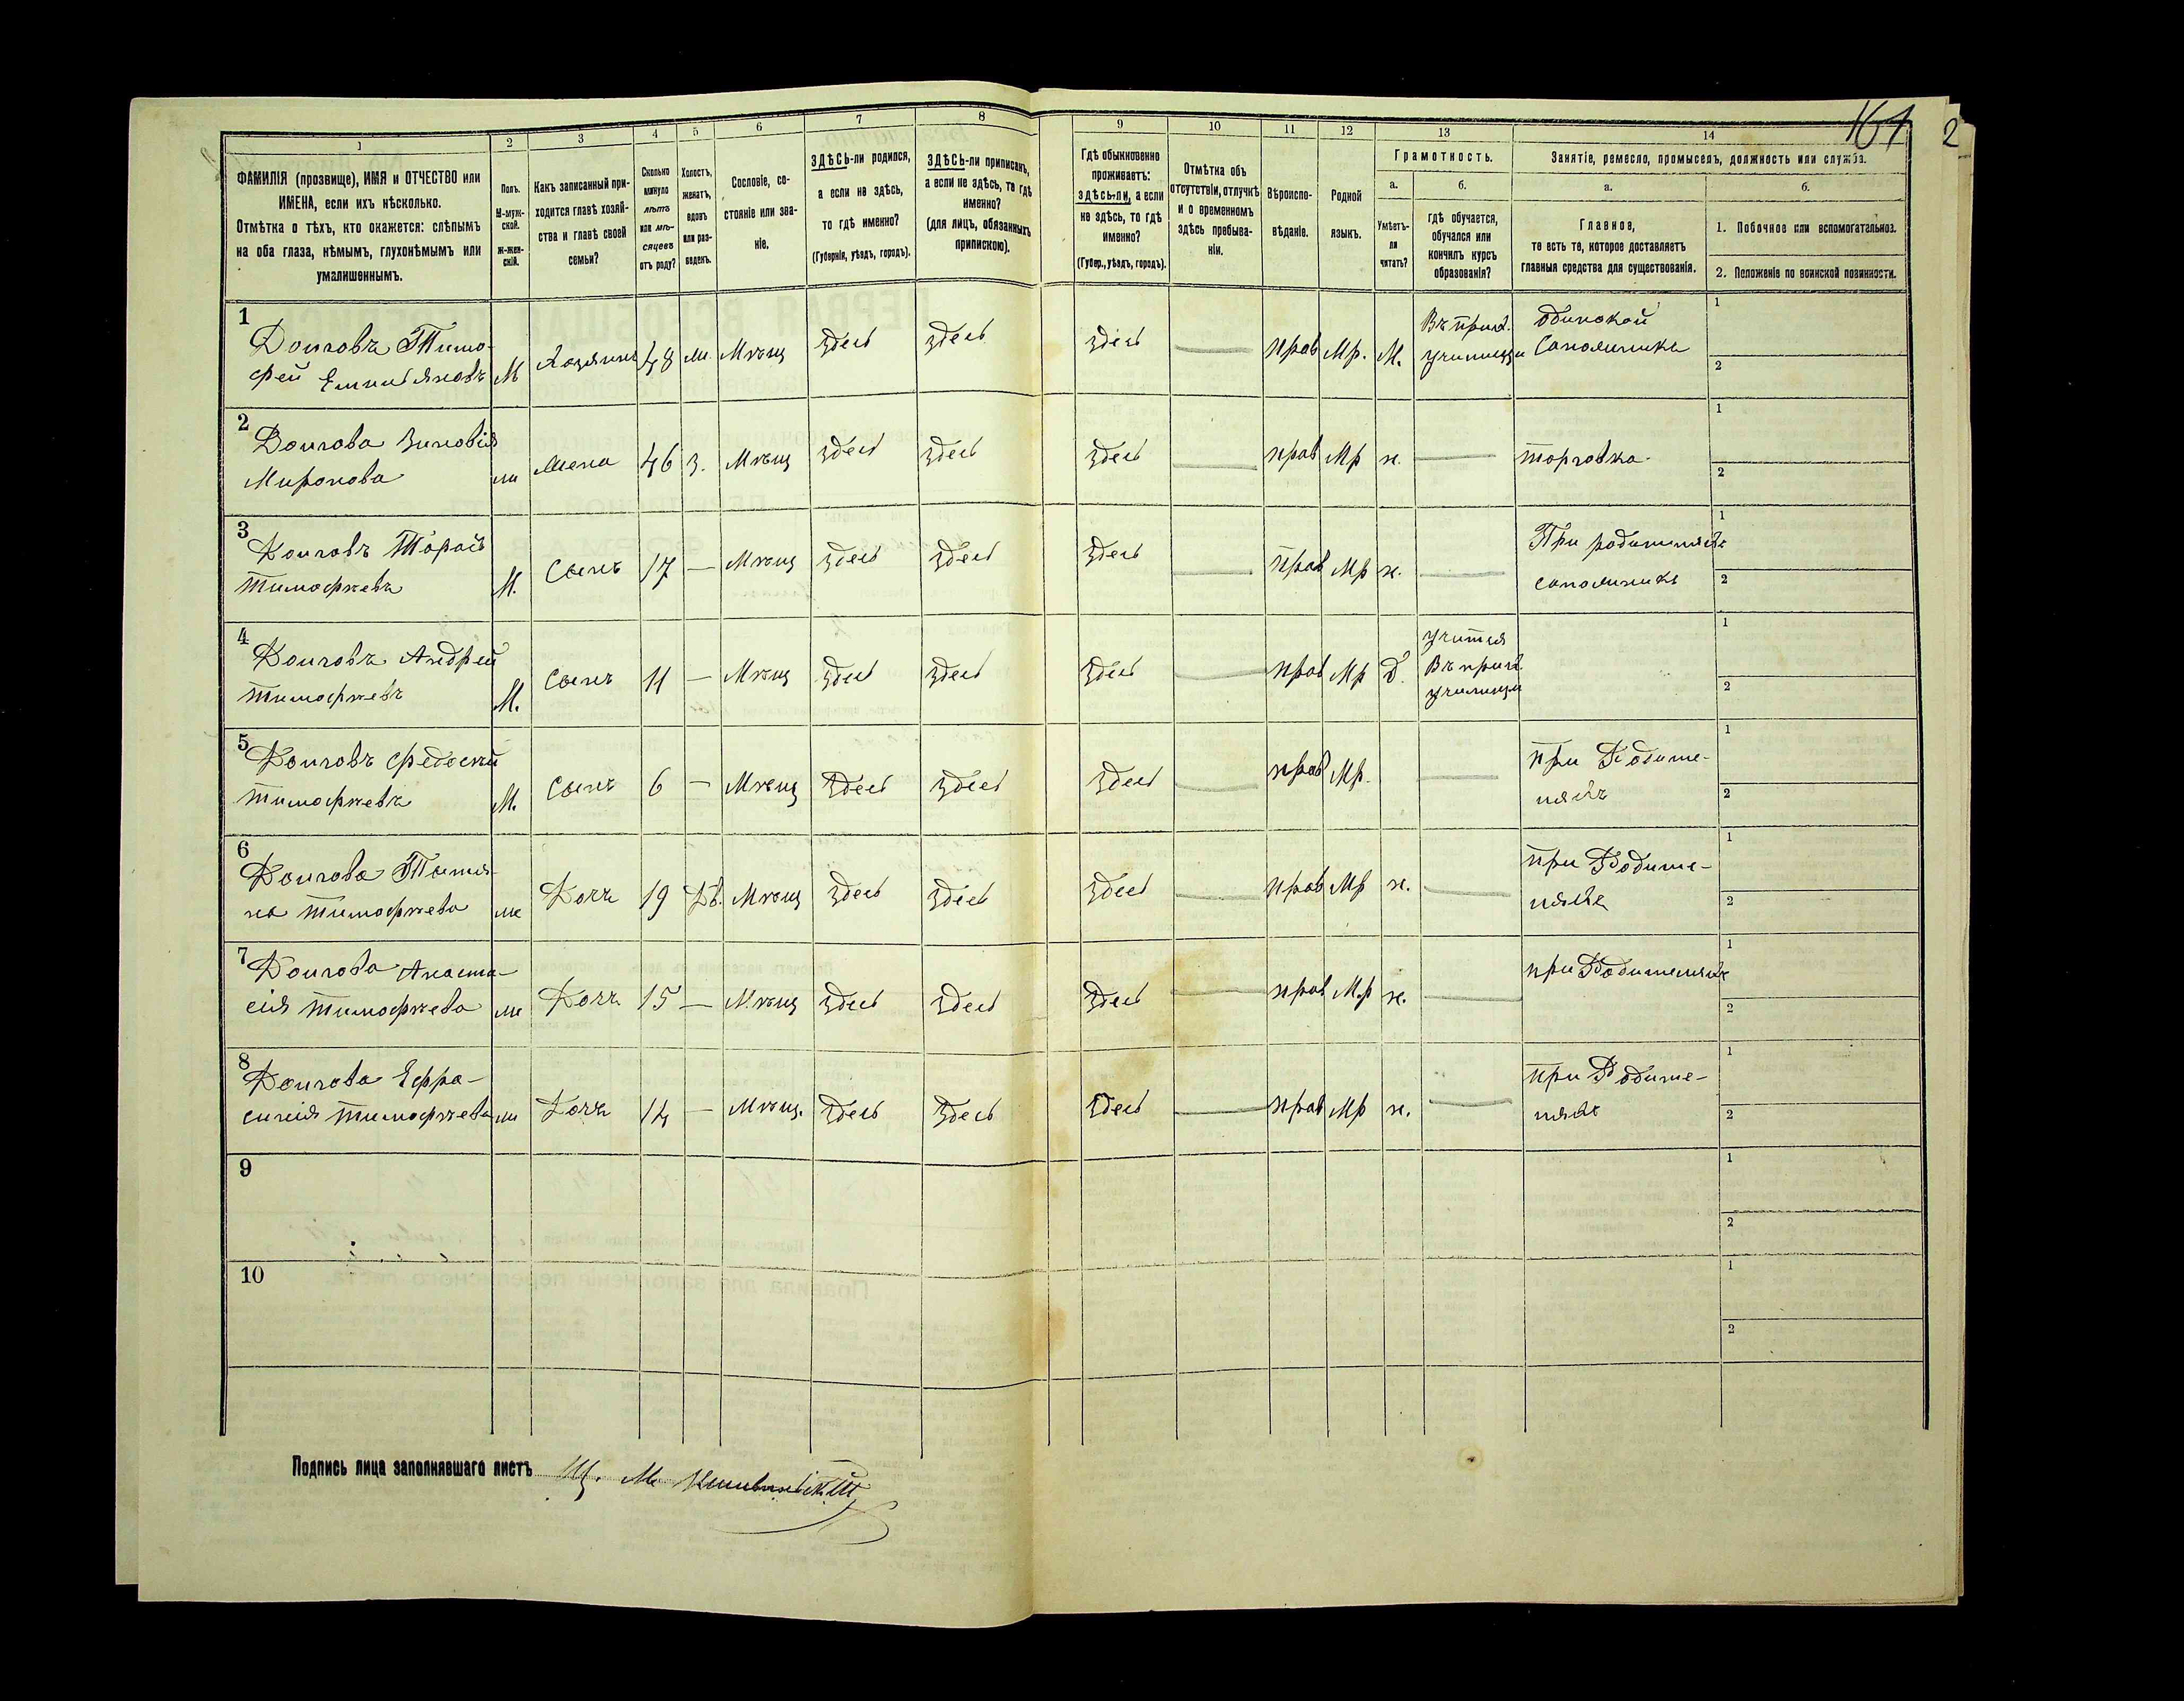 161
2
1 2 3 4 5 6 7 8 9 10 11 12 13 14
ФАМИЛІЯ (прозвище), ИМЯ и ОТЧЕСТВО или
ИМЕНА, если ихъ нѣсколько.
Отмѣтка о тѣхъ, кто окажется: слѣпымъ
на оба глаза, нѣмымъ, глухонѣмымъ или
умалишеннымъ.
Полъ.
М-муж-
ской.
Ж-жен-
скій.
Какъ записанный при-
ходится главѣ хозяй-
ства и главѣ своей
семьи?
Сколько
минуло
лѣтъ
или мѣ-
сяцевъ
отъ роду?
Холостъ,
женатъ,
вдовъ
или раз-
веденъ.
Сословіе, со-
стояніе или зва-
ніе.
ЗДѢСЬ-ли родился,
а если не здѣсь,
то гдѣ именно?
(Губернія, уѣздъ, городъ).
ЗДѢСЬ-ли приписанъ,
а если не здѣсь, то гдѣ
именно?
(для лицъ, обязанныхъ
припискою).
Гдѣ обыкновенно
проживаетъ:
здѣсь-ли, а если
не здѣсь, то гдѣ
именно?
(Губер., уѣздъ, городъ).
Отмѣтка объ
отсутствіи, отлучкѣ
и о временномъ
здѣсь пребыва-
ніи.
Вѣроиспо-
вѣданіе.
Родной
языкъ.
Грамотность.
а.
Умѣетъ-
ли
читать?
б.
гдѣ обучается,
обучался или
кончилъ курсъ
образованія?
Занятіе, ремесло, промыселъ, должность или служба.
а.
Главное,
то есть то, которое доставляетъ
главныя средства для существованія.
б.
1. Побочное или вспомогательное.
2. Положеніе по воинской повинности.
1
Тимо-
фей М
Хозяинъ 48 ж. Мѣщ Здесь Здесь Здесь — прав Мр.
училищи
1
2
2
Миронова ж Жена 46 з. Мѣщ Здесь Здесь Здесь — прав Мр н. — торговка.
1
2
3
Тимофѣевъ М. Сынъ 17 — Мѣщ Здесь Здесь Здесь — прав Мр н. —
При родителяхъ
1
2
4
Андрей
Тимофѣевъ М. Сынъ 11 — Мѣщ Здесь Здесь Здесь — прав Мр
учится
училищи
1
2
5
Тимофѣевъ М. Сынъ 6 — Мѣщ Здесь Здесь Здесь — прав Мр. —
при Родите-
ляхъ
1
2
6
Татья-
на Тимофѣева ж Дочь 19 Дѣв. Мѣщ Здесь Здесь Здесь — прав Мр н. —
при Родите-
ляхъ
1
2
7
Анаста-
сія Тимофѣева ж Дочь 15 — Мѣщ Здесь Здесь Здесь — прав Мр н. —
при Родителяхъ
1
2
8
Ефро-
синія Тимофѣева ж Дочь 14 — Мѣщ. Здесь Здесь Здесь — прав Мр н. —
при Родите-
ляхъ
1
2
9
1
2
10
1
2
Подпись лица заполнявшаго листъ